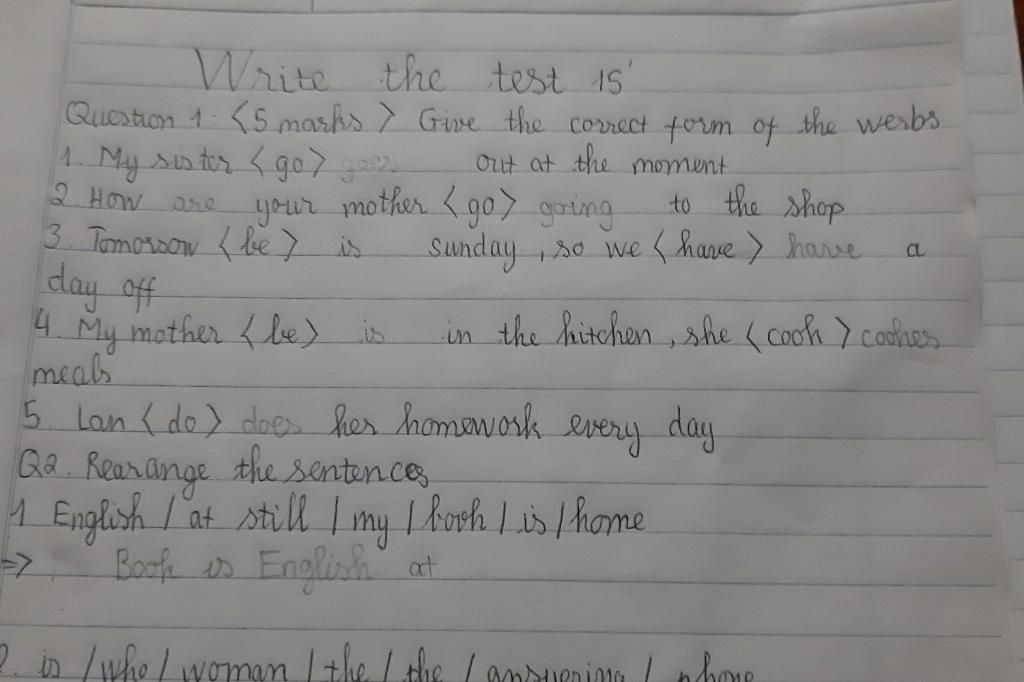 Write the test 15'
Question 1: <5 marks> Give the correct form of the werbs
1. My sister <go> goes out at the moment
2 How are your mother <go> going to the shop
3. Tomorrow <be> is sunday, so we <have> have a
day off
4. My mother <be> is in the kitchen, she <cook> cookes
meals
5 Lan <do> does her homework every day
Q2. Rearange the sentences
1 English / at still / my / book / is / home
=> Book is English at
2. is / who / woman / the / the / answering / phone